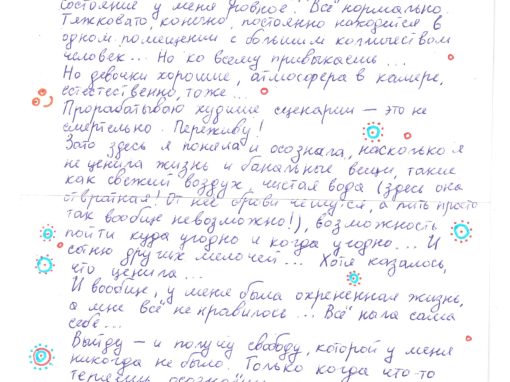 состояние у меня ровное. Всё нормально.
Тяжковато, конечно, постоянно находится в
одном помещении с большим количеством
человек... Но ко всему привыкаешь...
Но девочки хорошие, атмосфера в камере,
естественно, тоже...
Прорабатываю худшие сценарии – это не
смертельно. Переживу!
Зато здесь я поняла и осознала, насколько я
не ценила жизнь и банальные вещи, такие
как свежий воздух, чистая вода (здесь она
отвратная! От неё брови чешутся, а пить просто
так вообще невозможно!), возможность
пойти куда угодно и когда угодно... И
сотню других мелочей... Хотя казалось,
что ценила...
И вообще, у меня была охрененная жизнь,
а мне всё не нравилось... Всё ныла сама
себе...
Выйду – и получу свободу, которой у меня
никогда не было. Только когда что-то
теряешь,